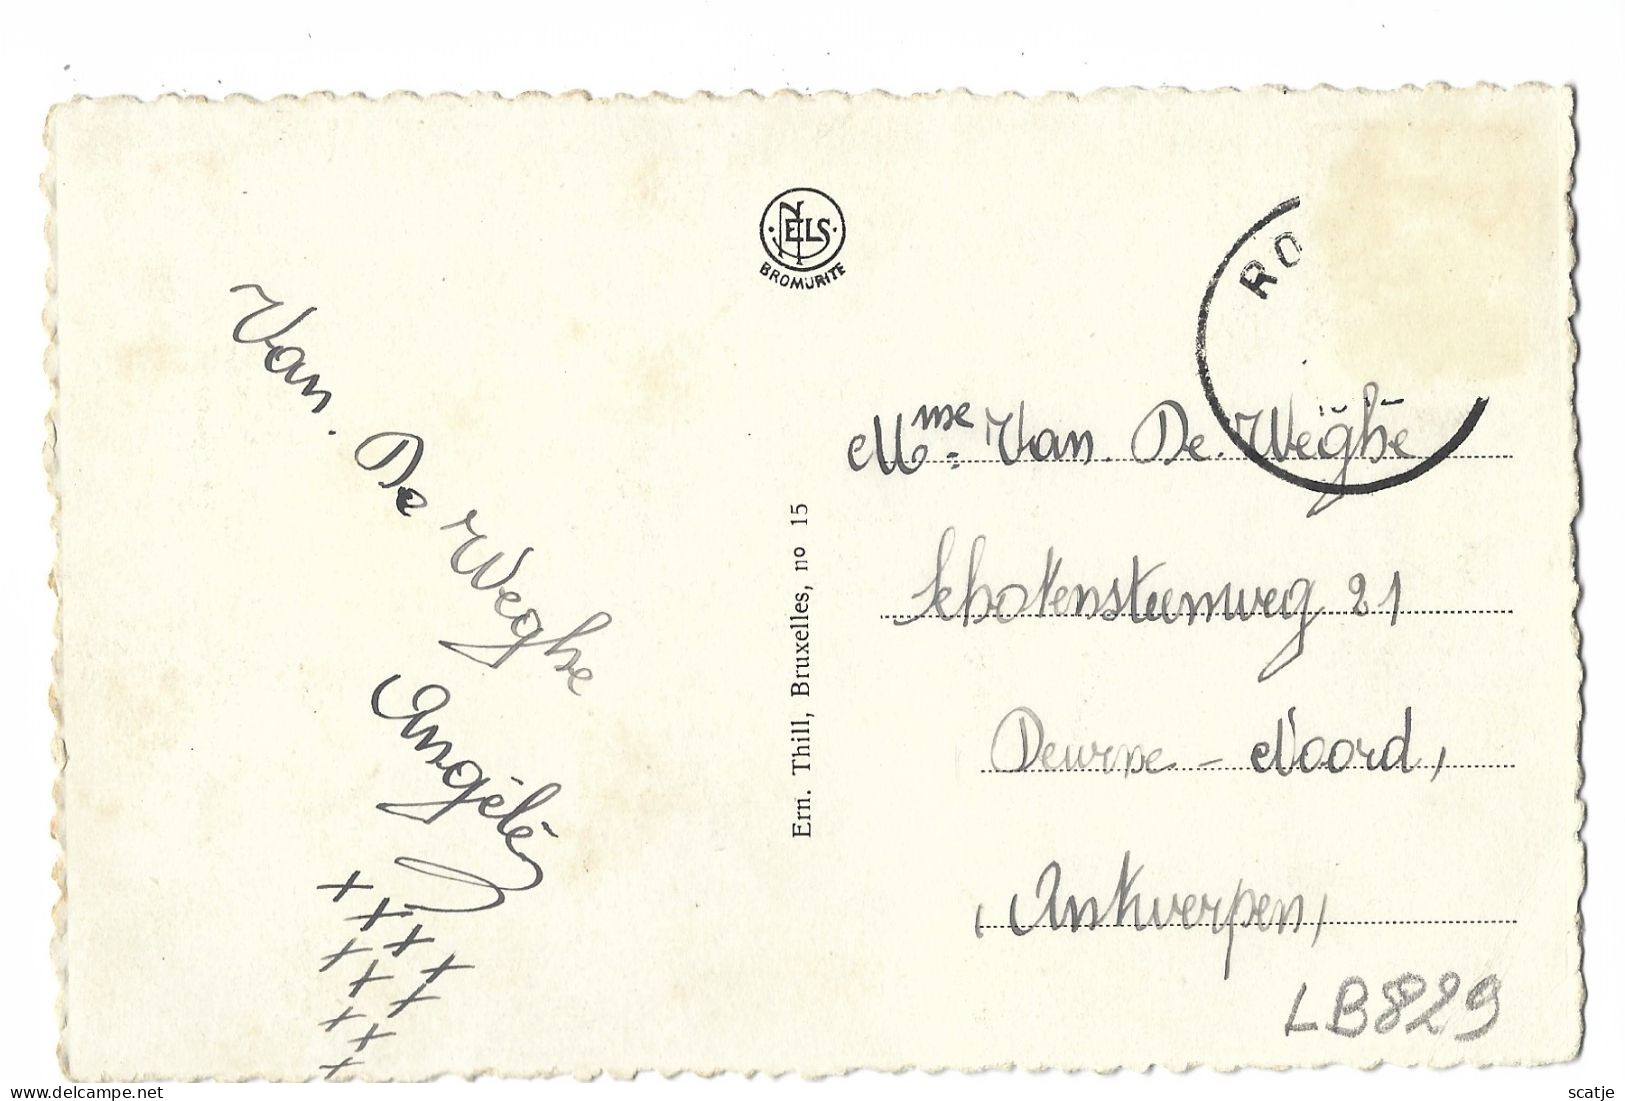 NELS
BROMURITE
RO
Van. De Weghe
Angèle
x
x x
x x x
x x
x x
x
Ern. Thill, Bruxelles, no 15
Mme. Van. De. Weghe
Schotensteenweg 21
Deurne - Noord,
Antwerpen,
LB829
scatje